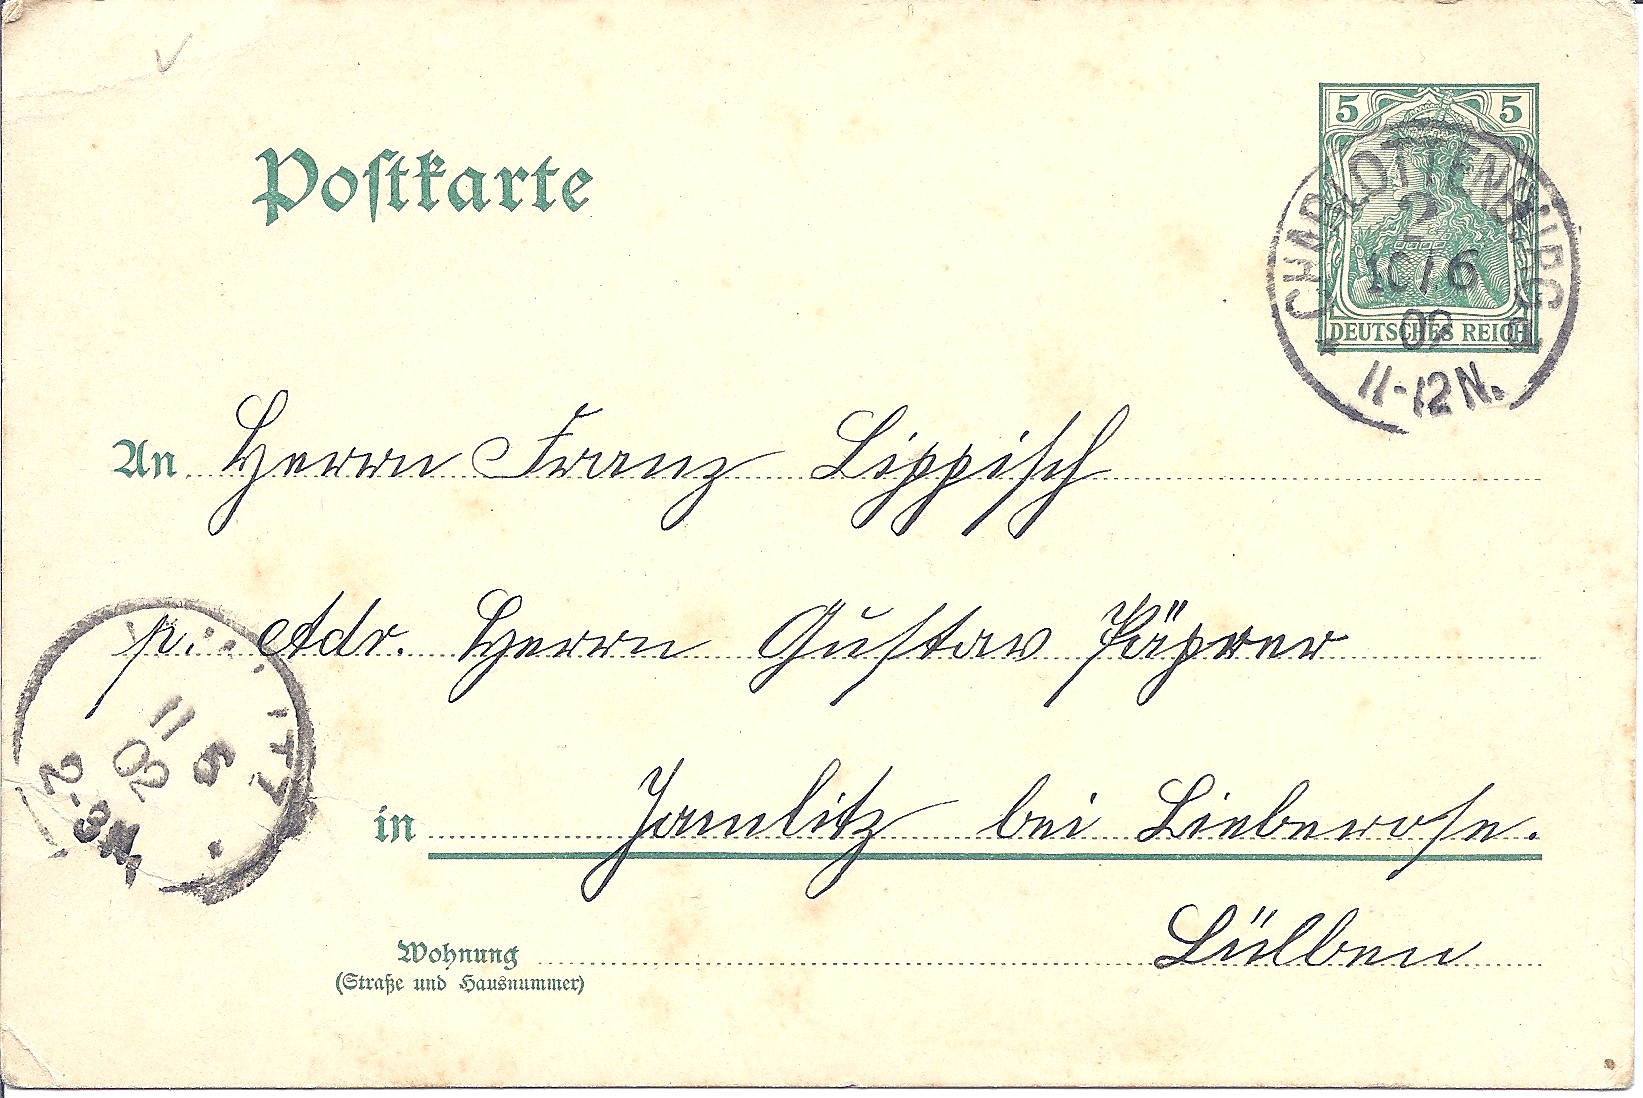 Postkarte
5 5
DEUTSCHES REICH
CHARLOTTENBURG
2
10/6
02
11-12N.
An Herrn Franz Lippisch
p. Adr. Herrn Gustav
11 6
02
2-3N.
in Jamlitz bei Lieberose.
Wohnung Lübben
(Straße und Hausnummer)